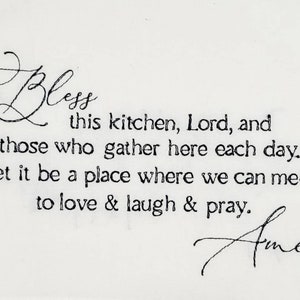 Bless
this kitchen, Lord, and
those who gather here each day.
et it be a place where we can mee
to love & laugh & pray.
Ame